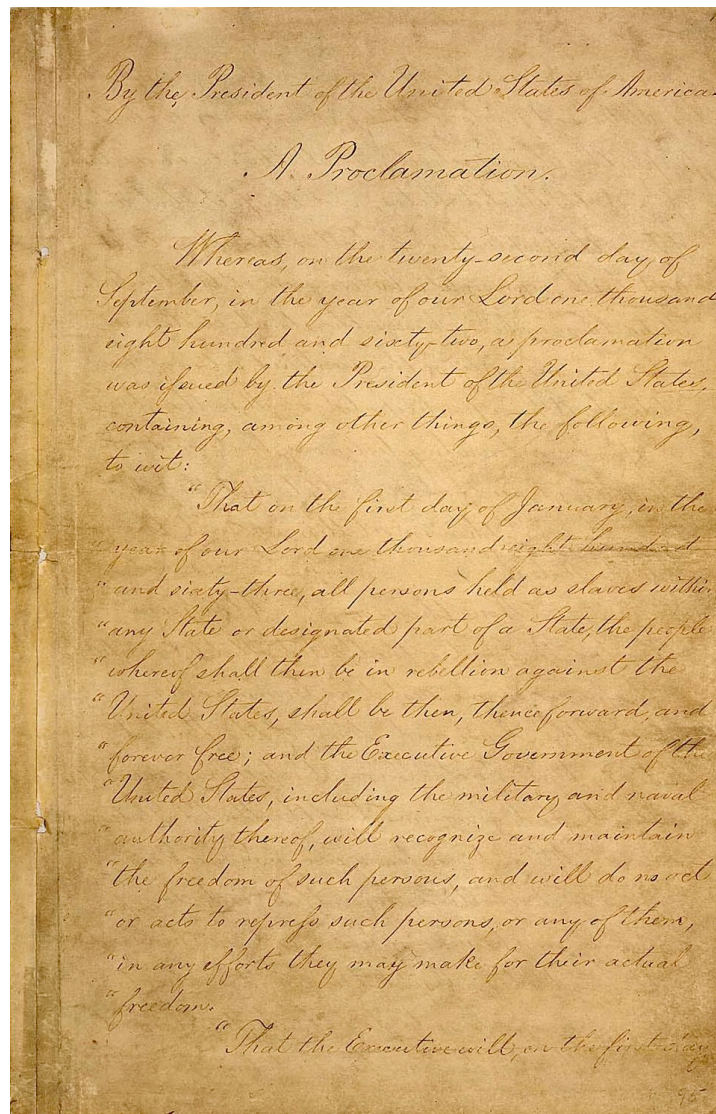 By the President of the United States of America.
A Proclamation.
Whereas, on the twenty-second day of
September, in the year of our Lord one thousand
eight hundred and sixty-two, a proclamation
was issued by the President of the United States,
containing, among other things, the following,
to wit:
"That on the first day of January, in the
"year of our Lord one thousand eight hundred
"and sixty-three, all persons held as slaves within
"any State or designated part of a State, the people
"whereof shall then be in rebellion against the
"United States, shall be then, thenceforward, and
"forever free; and the Executive Government of the
"United States, including the military and naval
"authority thereof, will recognize and maintain
"the freedom of such persons, and will do no act
"or acts to repress such persons, or any of them,
"in any efforts they may make for their actual
"freedom.
"That the Executive will, on the first day
95